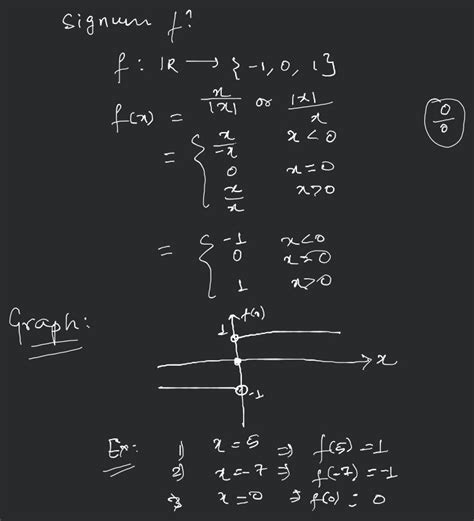 Signum f?
f : IR → {-1, 0, 1}
f(x) = x/|x| or |x|/x
= { x/-x x<0
0 x=0
x/x x>0
0/0
= { -1 x<0
0 x=0
1 x>0
Graph:
f(x)
1
x
-1
Ex: 1) x=5 ⇒ f(5)=1
2) x=-7 ⇒ f(-7)=-1
3 x=0 ⇒ f(0) = 0